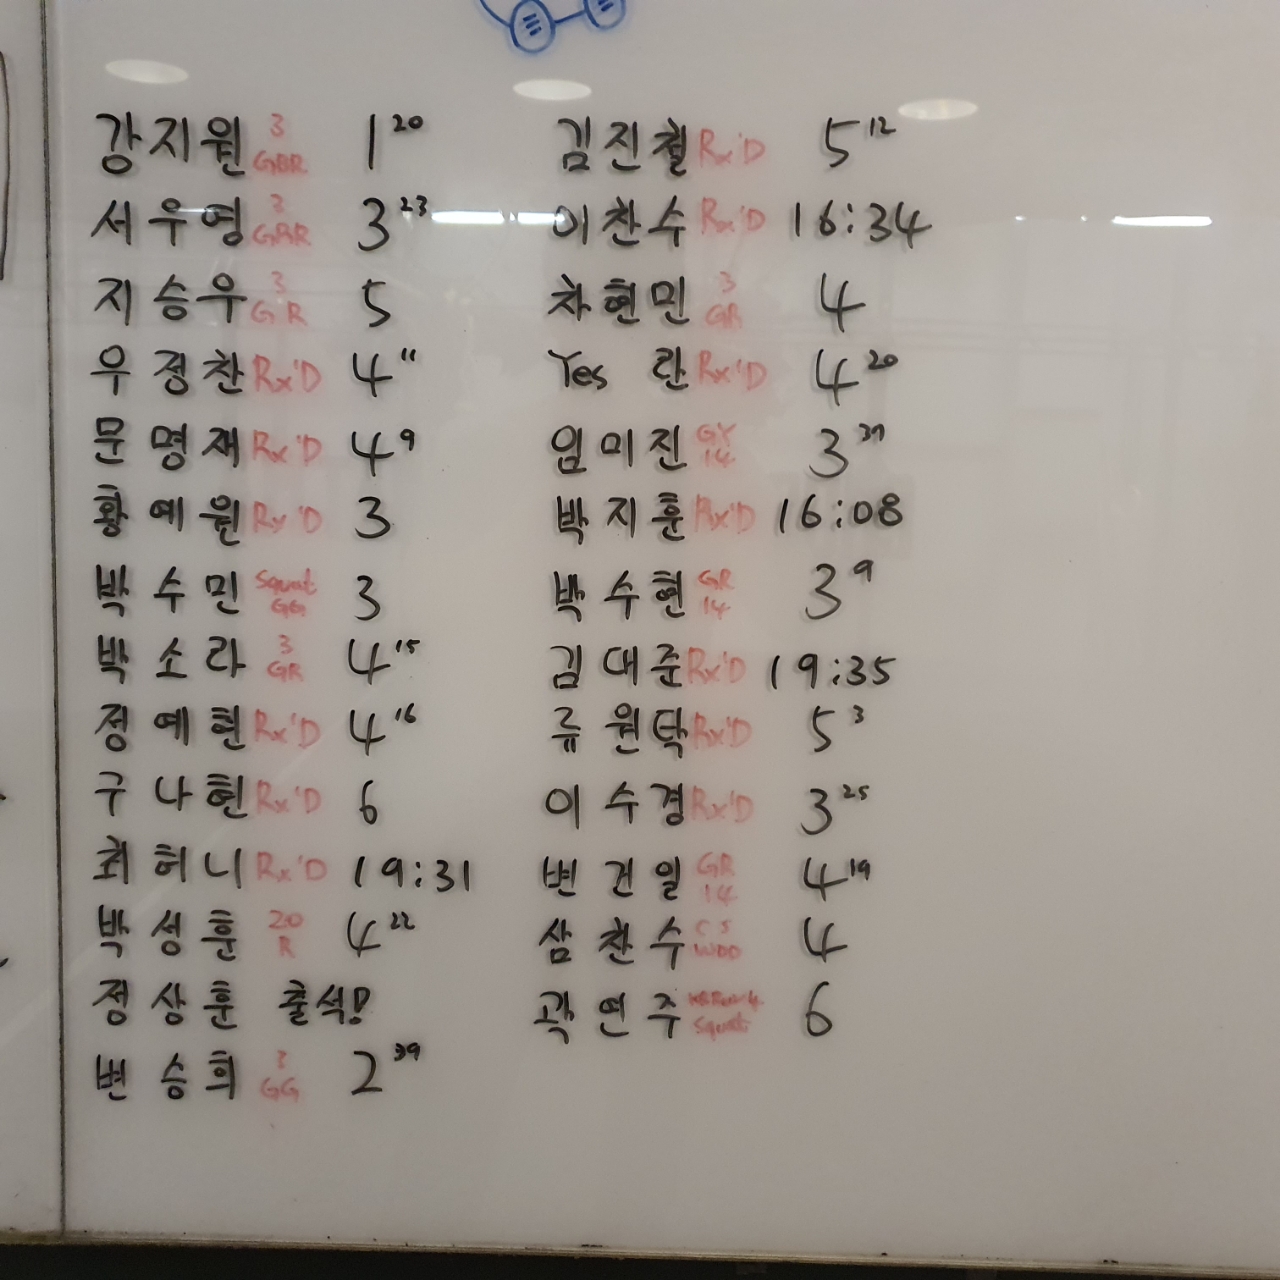 강지원 3 GBR 1 20
서우영 3 GRR 3 23
지승우 3 GR 5
우정찬 Rx'D 4 11
문명재 Rx'D 4 9
황예원 Rx'D 3
박수민 Squat GG 3
박소라 3 GR 4 15
정예현 Rx'D 4 16
구나현 Rx'D 6
최허니 Rx'D 19:31
박성훈 20 R 4 22
정상훈 출석!
변승희 3 GG 2 39
김진철 Rx'D 5 12
이찬수 Rx'D 16:34
차현민 3 GR 4
Yes 란 Rx'D 4 20
임미진 GY 14 3
박지훈 Rx'D 16:08
박수현 GR 14 3 9
김대준 Rx'D 19:35
류원탁 Rx'D 5 3
이수경 Rx'D 3 25
변건일 GR 14 4 19
삼찬수 4
곽연주 Squat 6